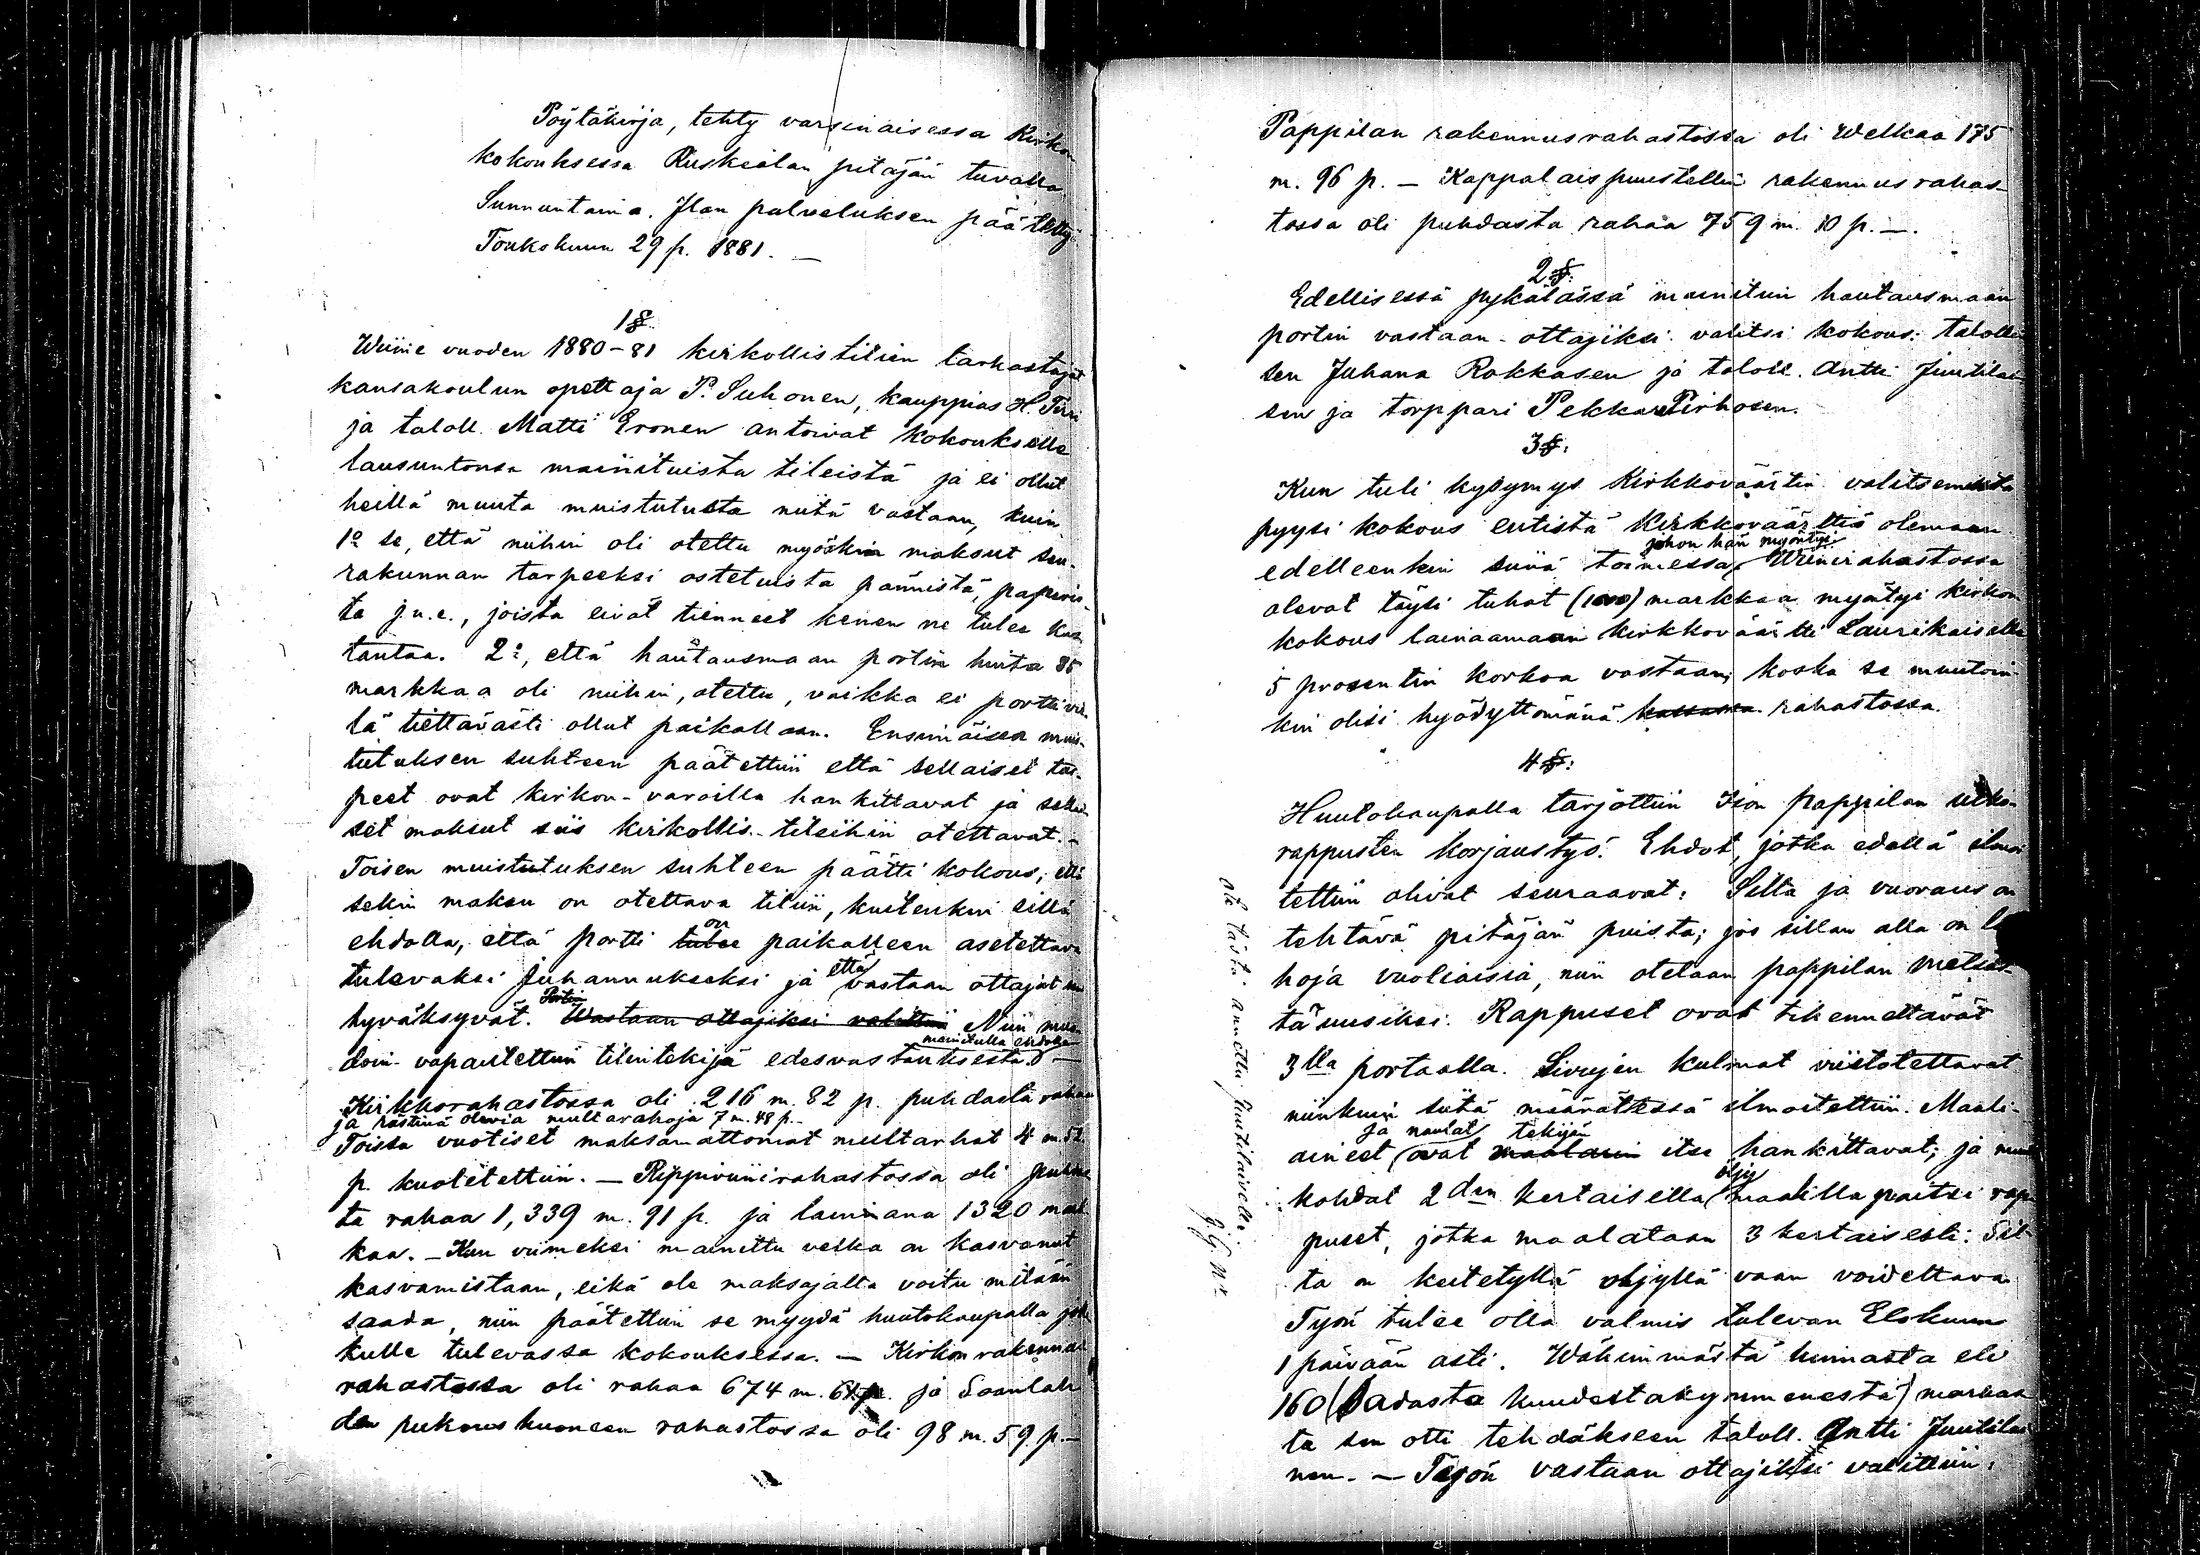 Pöytäkirja, tehty varsinaisessa Kirkon
kokouksessa Ruskealan pitäjän tuvalla
Sunnuntaina. Jlan palveluksen päätetty
Toukokuun 29 p. 1881. —
1 §.
Wiime vuoden 1880-81 kirkollistilien tarkastajat
kansakoulun opettaja P. Suhonen, kauppias H. Tirri
ja taloll. Matti Eronen antoivat kokoukselle
lausuntonsa mainituista tileistä ja ei ollut
heillä muuta muistutusta niitä vastaan, kuin
1o se, että niihin oli otettu myöskin maksut seu-
rakunnan tarpeeksi ostetuista pännistä, paperis-
ta j.n.e., joista eivät tienneet kenen ne tulee kus-
tantaa. 2o, että hautausmaan portin hinta 85
markkaa oli niihin, otettu, vaikka ei portti vie-
lä tiettävästi ollut paikallaan. Ensimäisen muis-
tutuksen suhteen päätettiin että sellaiset tar-
peet ovat kirkon-varoilla hankittavat ja sellai-
set maksut siis kirkollis-tileihin otettavat. –
Toisen muistutuksen suhteen päätti kokous, että
sekin maksu on otettava tiliin, kuitenkin sillä
ehdolla, että portti tulee on paikalleen asetettava
tulevaksi Juhannukseksi ja että vastaan ottajat sen
hyväksyvät. Portin Wastaan ottajiksi valittiin Niin muo-
doin vapautettiin tilintekijä edesvastauksesta mainitulla ehdolla —
Kirkkorahastossa oli 216 m. 82 p. puhdasta rahaa
ja rästinä olevia multarahoja 7 m. 48 p. –
Toissa vuotiset maksamattomat multarhat 4 m. 52
p. kuoletettiin. — Rippiviinirahastossa oli puhdas-
ta rahaa 1,339 m. 91 p. ja lainana 1320 mark-
kaa. — Kun viimeksi mainittu velka on kasvanut
kasvamistaan, eikä ole maksajalta voitu mitään
saada, niin päätettiin se myydä huutokaupalla jol-
kulle tulevassa kokouksessa. — Kirkon rakennus
rahastossa oli rahaa 674 m. p. ja Soanlah-
den rukoushuoneen rahastossa oli 98 m. 59 p. —
Pappilan rakennusrahastossa oli Welkaa 175
m. 96 p. — Kappalaispuustellin rakennusrahas-
tossa oli puhdasta rahaa 759 m. 10 p. —.
2 §:
Edellisessä pykälässä mainitun hautausmaan
portin vastaan-ottajiksi valitsi kokous: talolli-
sen Juhana Rokkasen ja taloll. Antti Juutilai-
sen ja torppari Pekka Pirhosen.
3 §:
Kun tuli kysymys Kirkkoväärtin valitsemista
pyysi kokous entistä Kirkkoväärttiä olemaan
edelleenkin siinä toimessa, johon hän myöntyi. Wiinirahastossa
olevat täysi tuhat (1000) markkaa myöntyi kirkon
kokous lainaamaan kirkkoväärtti Laurikaiselle
5 prosentin korkoa vastaan, koska se muutoin-
kin olisi hyödyttömänä kassassa rahastossa.
4 §:
Huutokaupalla tarjottiin ison pappilan ulko-
rappusten korjaustyö. Ehdot, jotka edellä ilmoi-
tettiin olivat seuraavat: Silta ja vuoraus on
tehtävä pitäjän puista; jos sillan alla on la-
hoja vuoliaisia, niin otetaan pappilan metsäs-
tä uusiksi. Rappuset ovat tikennettävät
3lla portaalla. Sivujen kulmat viistotettavat
niinkuin siitä määrättessä ilmoitettiin. Maali-
aineet ja naulat ovat maalarin tekijän itse hankittavat; ja muut
kohdat 2den kertaisella öljy maalilla paitsi rap-
puset, jotka maalataan 3 kertaisesti: Sil-
ta on keitetyllä öljyllä vaan voideltava
Työn tulee olla valmis tulevan Elokuun
1 päivään asti. Wähimmästä hinnasta eli
160 (Sadasta kuudestakymmenestä) markas-
ta sen otti tehdäkseen taloll. Antti Juutilai-
nen. — Työn vastaan ottajiksi valittiin:
ote tästä annettu Juutilaiselle.